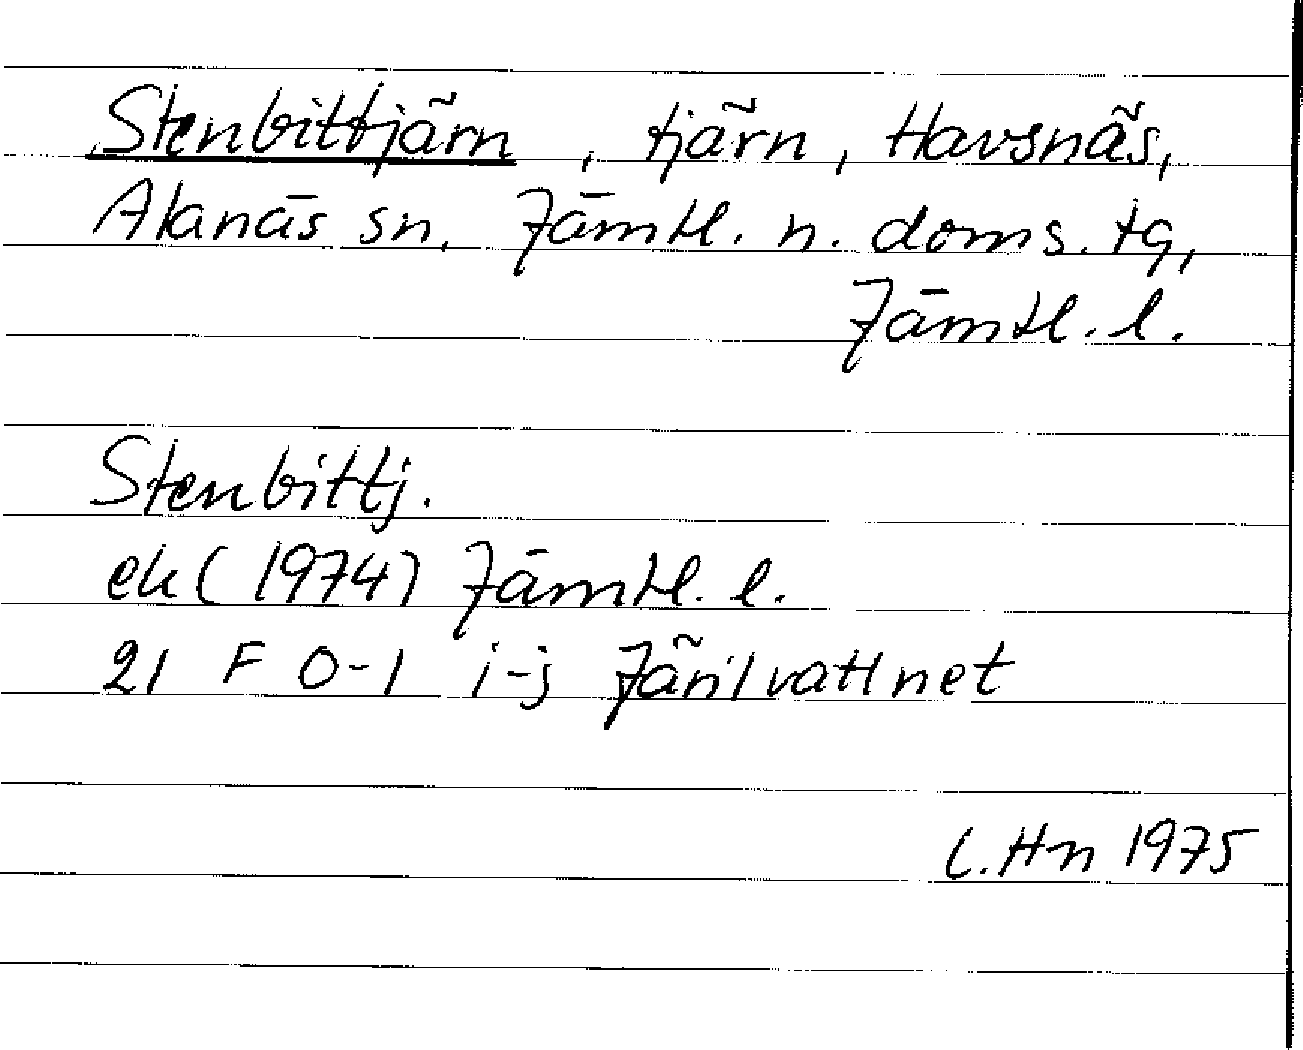 Stenbittjärn, tjärn, Havsnäs,
Alanäs sn, Jämtl. n. doms. tg,
Jämtl. l.
Stenbittj.
ek (1974) Jämtl. l.
21 F 0-1 i-j Järilvattnet
C. Hn 1975